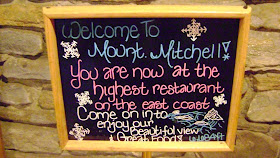 Welcome To
Mount. Mitchell!
You are now at the
highest restaurant
on the east coast
Come on in to
enjoy our
beautiful view
& Great Food!